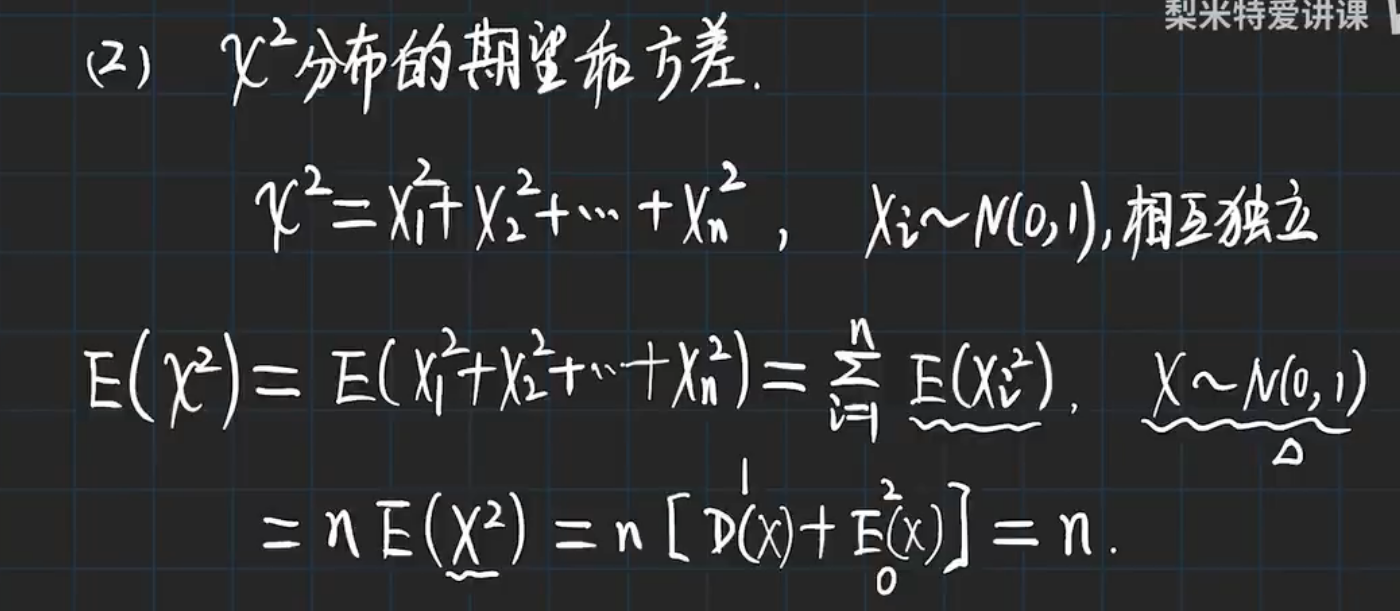 梨米特爱讲课
(2) χ²分布的期望和方差.
χ² = X₁² + X₂² + ⋯ + Xₙ² , Xᵢ ~ N(0,1), 相互独立
E(χ²) = E(X₁² + X₂² + ⋯ + Xₙ²) = Σᵢ₌₁ⁿ E(Xᵢ²), X ~ N(0,1) Δ
1
= n E(X²) = n [D(X) + E²(X)] = n.
0